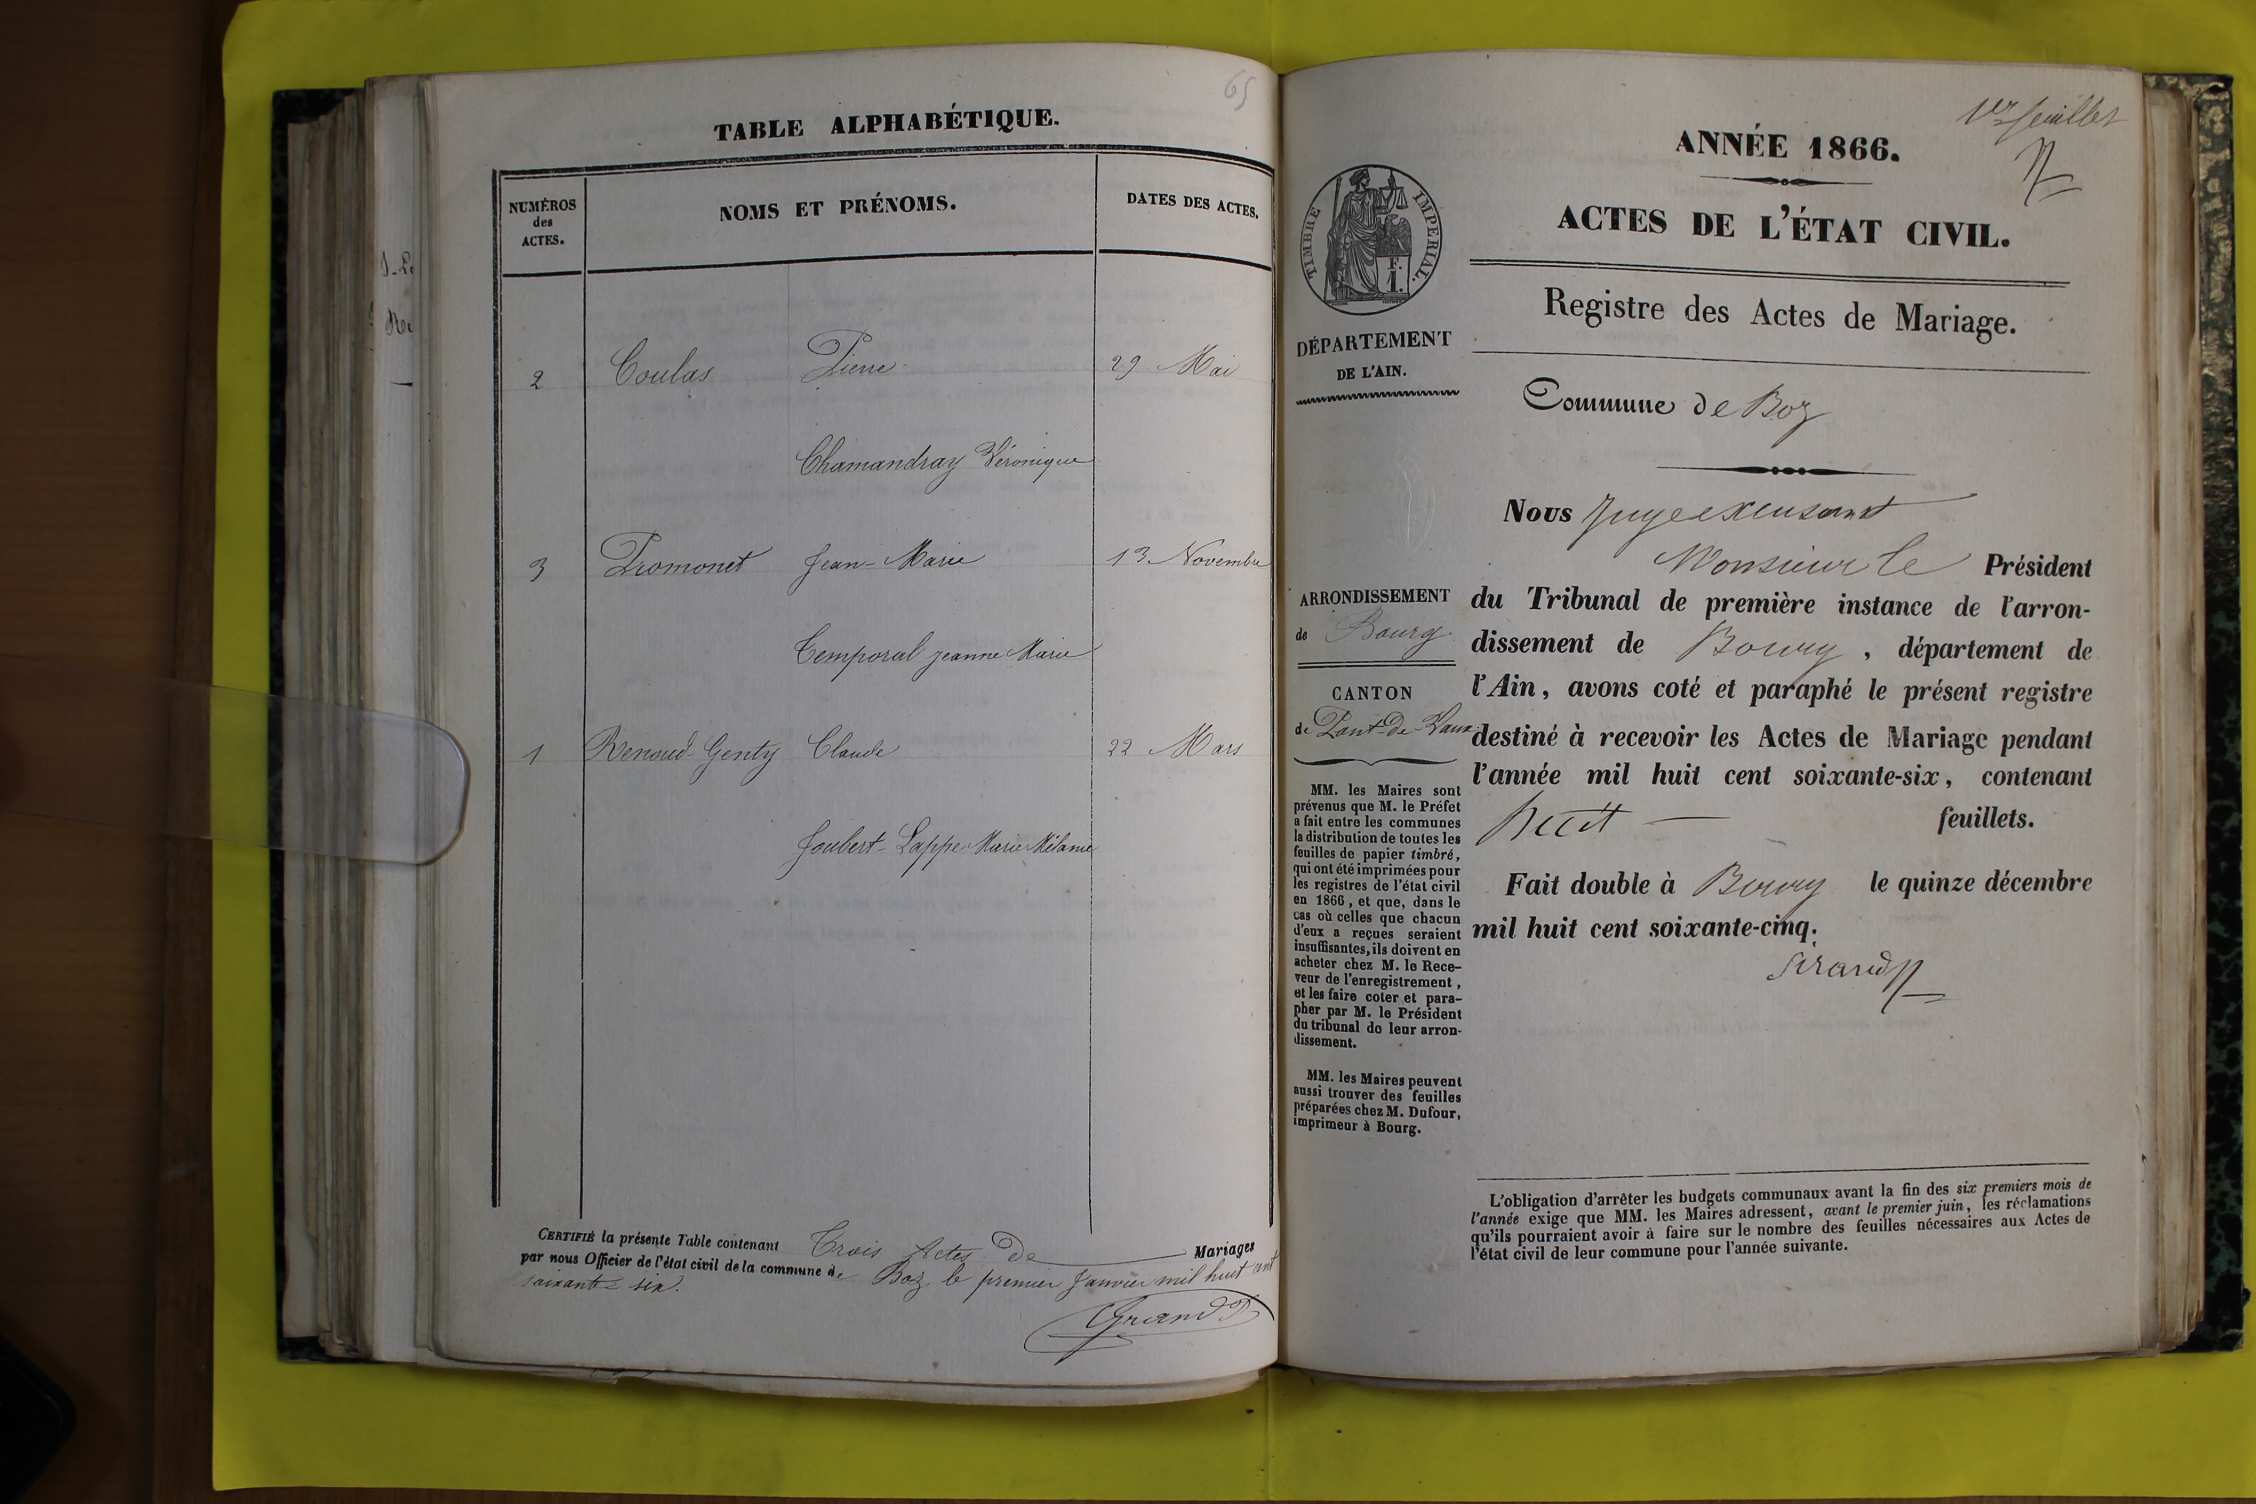 65
TABLE ALPHABÉTIQUE.
NUMÉROS
des
ACTES.
NOMS ET PRÉNOMS.
DATES DES ACTES.
2 Coulas Pierre 29 Mai
Chamandray Véronique
3 Promonet Jean-Marie 13 Novembre
Temporal Jeanne Marie
1 Renoud-Genty Claude 22 Mars
Joubert-Lappe Marie Mélanie
CERTIFIÉ la présente Table contenant Trois Actes De Mariages
par nous Officier de l'état civil de la commune de Boz le premier Janvier mil huit cent
soixante-six.
1er feuillet
ANNÉE 1866.
ACTES DE L'ÉTAT CIVIL.
Registre des Actes de Mariage.
TIMBRE IMPERIAL.
F.
1.
DÉPARTEMENT
DE L'AIN.
Commune de Boz
ARRONDISSEMENT
de Bourg
CANTON
de Pont-de-Vaux
MM. les Maires sont
prévenus que M. le Préfet
a fait entre les communes
la distribution de toutes les
feuilles de papier timbré,
qui ont été imprimées pour
les registres de l'état civil
en 1866, et que, dans le
cas où celles que chacun
d'eux a reçues seraient
insuffisantes, ils doivent en
acheter chez M. le Rece-
veur de l'enregistrement,
et les faire coter et para-
pher par M. le Président
du tribunal de leur arron-
dissement.
MM. les Maires peuvent
aussi trouver des feuilles
préparées chez M. Dufour,
imprimeur à Bourg.
Nous Juge excusant
Monsieur le Président
du Tribunal de première instance de l'arron-
dissement de Bourg, département de
l'Ain, avons coté et paraphé le présent registre
destiné à recevoir les Actes de Mariage pendant
l'année mil huit cent soixante-six, contenant
huit feuillets.
Fait double à Bourg le quinze décembre
mil huit cent soixante-cinq.
L'obligation d'arrêter les budgets communaux avant la fin des six premiers mois de
l'année exige que MM. les Maires adressent, avant le premier juin, les réclamations
qu'ils pourraient avoir à faire sur le nombre des feuilles nécessaires aux Actes de
l'état civil de leur commune pour l'année suivante.